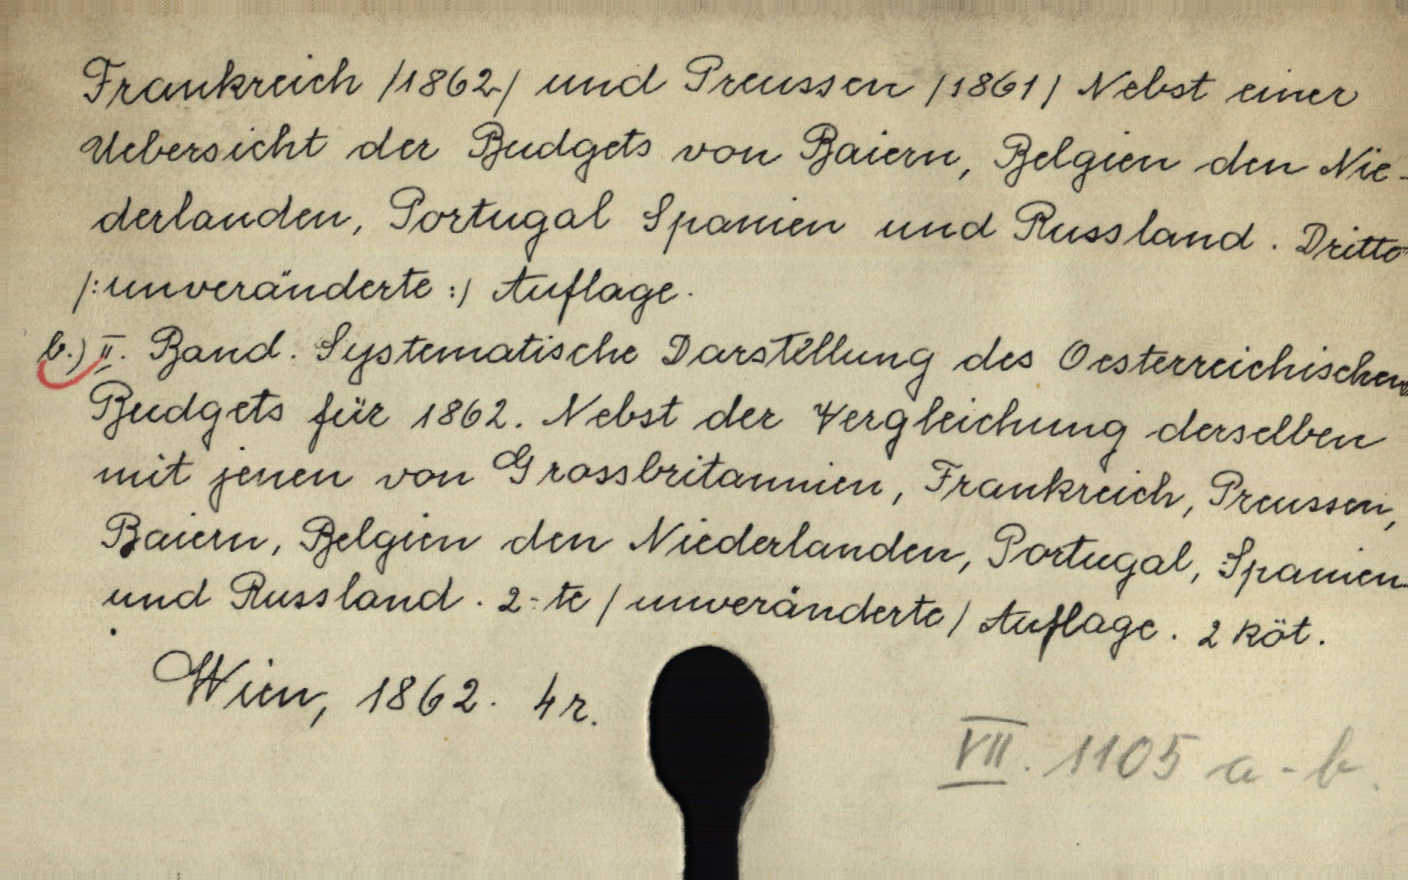 Frankreich /1862/ und Preussen /1861/ Nebst einer
Uebersicht der Budgets von Baiern, Belgien den Nie-
derlanden, Portugal Spanien und Russland. Dritte
/:unveränderte:/ Auflage.
b.) II. Band. Systematische Darstellung des Oesterreichischen
Budgets für 1862. Nebst der Vergleichung derselben
mit jenen von Grossbritannien, Frankreich, Preussen,
Baiern, Belgien den Niederlanden, Portugal, Spanien
und Russland. 2-te /unveränderte/ Auflage. 2 köt.
Wien, 1862. 4r.
VII. 1105 a-b.